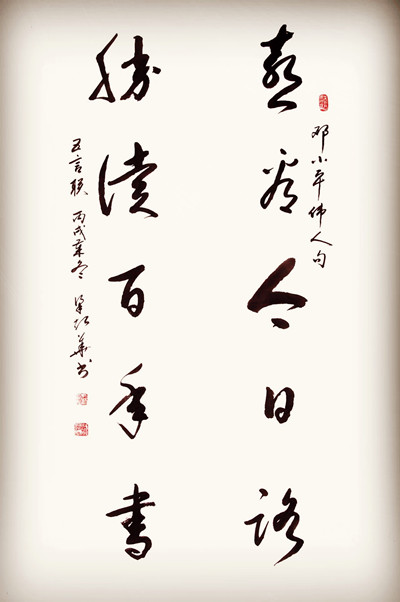 邓小平伟人句
喜看今日路
勝读百年书
五言联 丙戌冬 華书